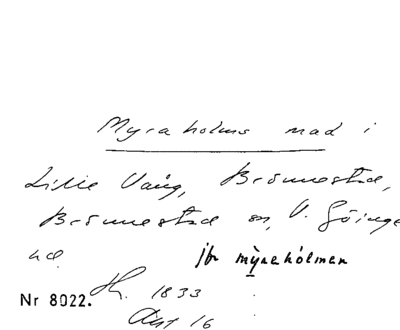 Myraholms mad i
Lille Vång, Brömmestad,
Brömmestad sn, V. Göinge
hd. jfr myreholmen
Nr 8022. H. 1833
Akt 16